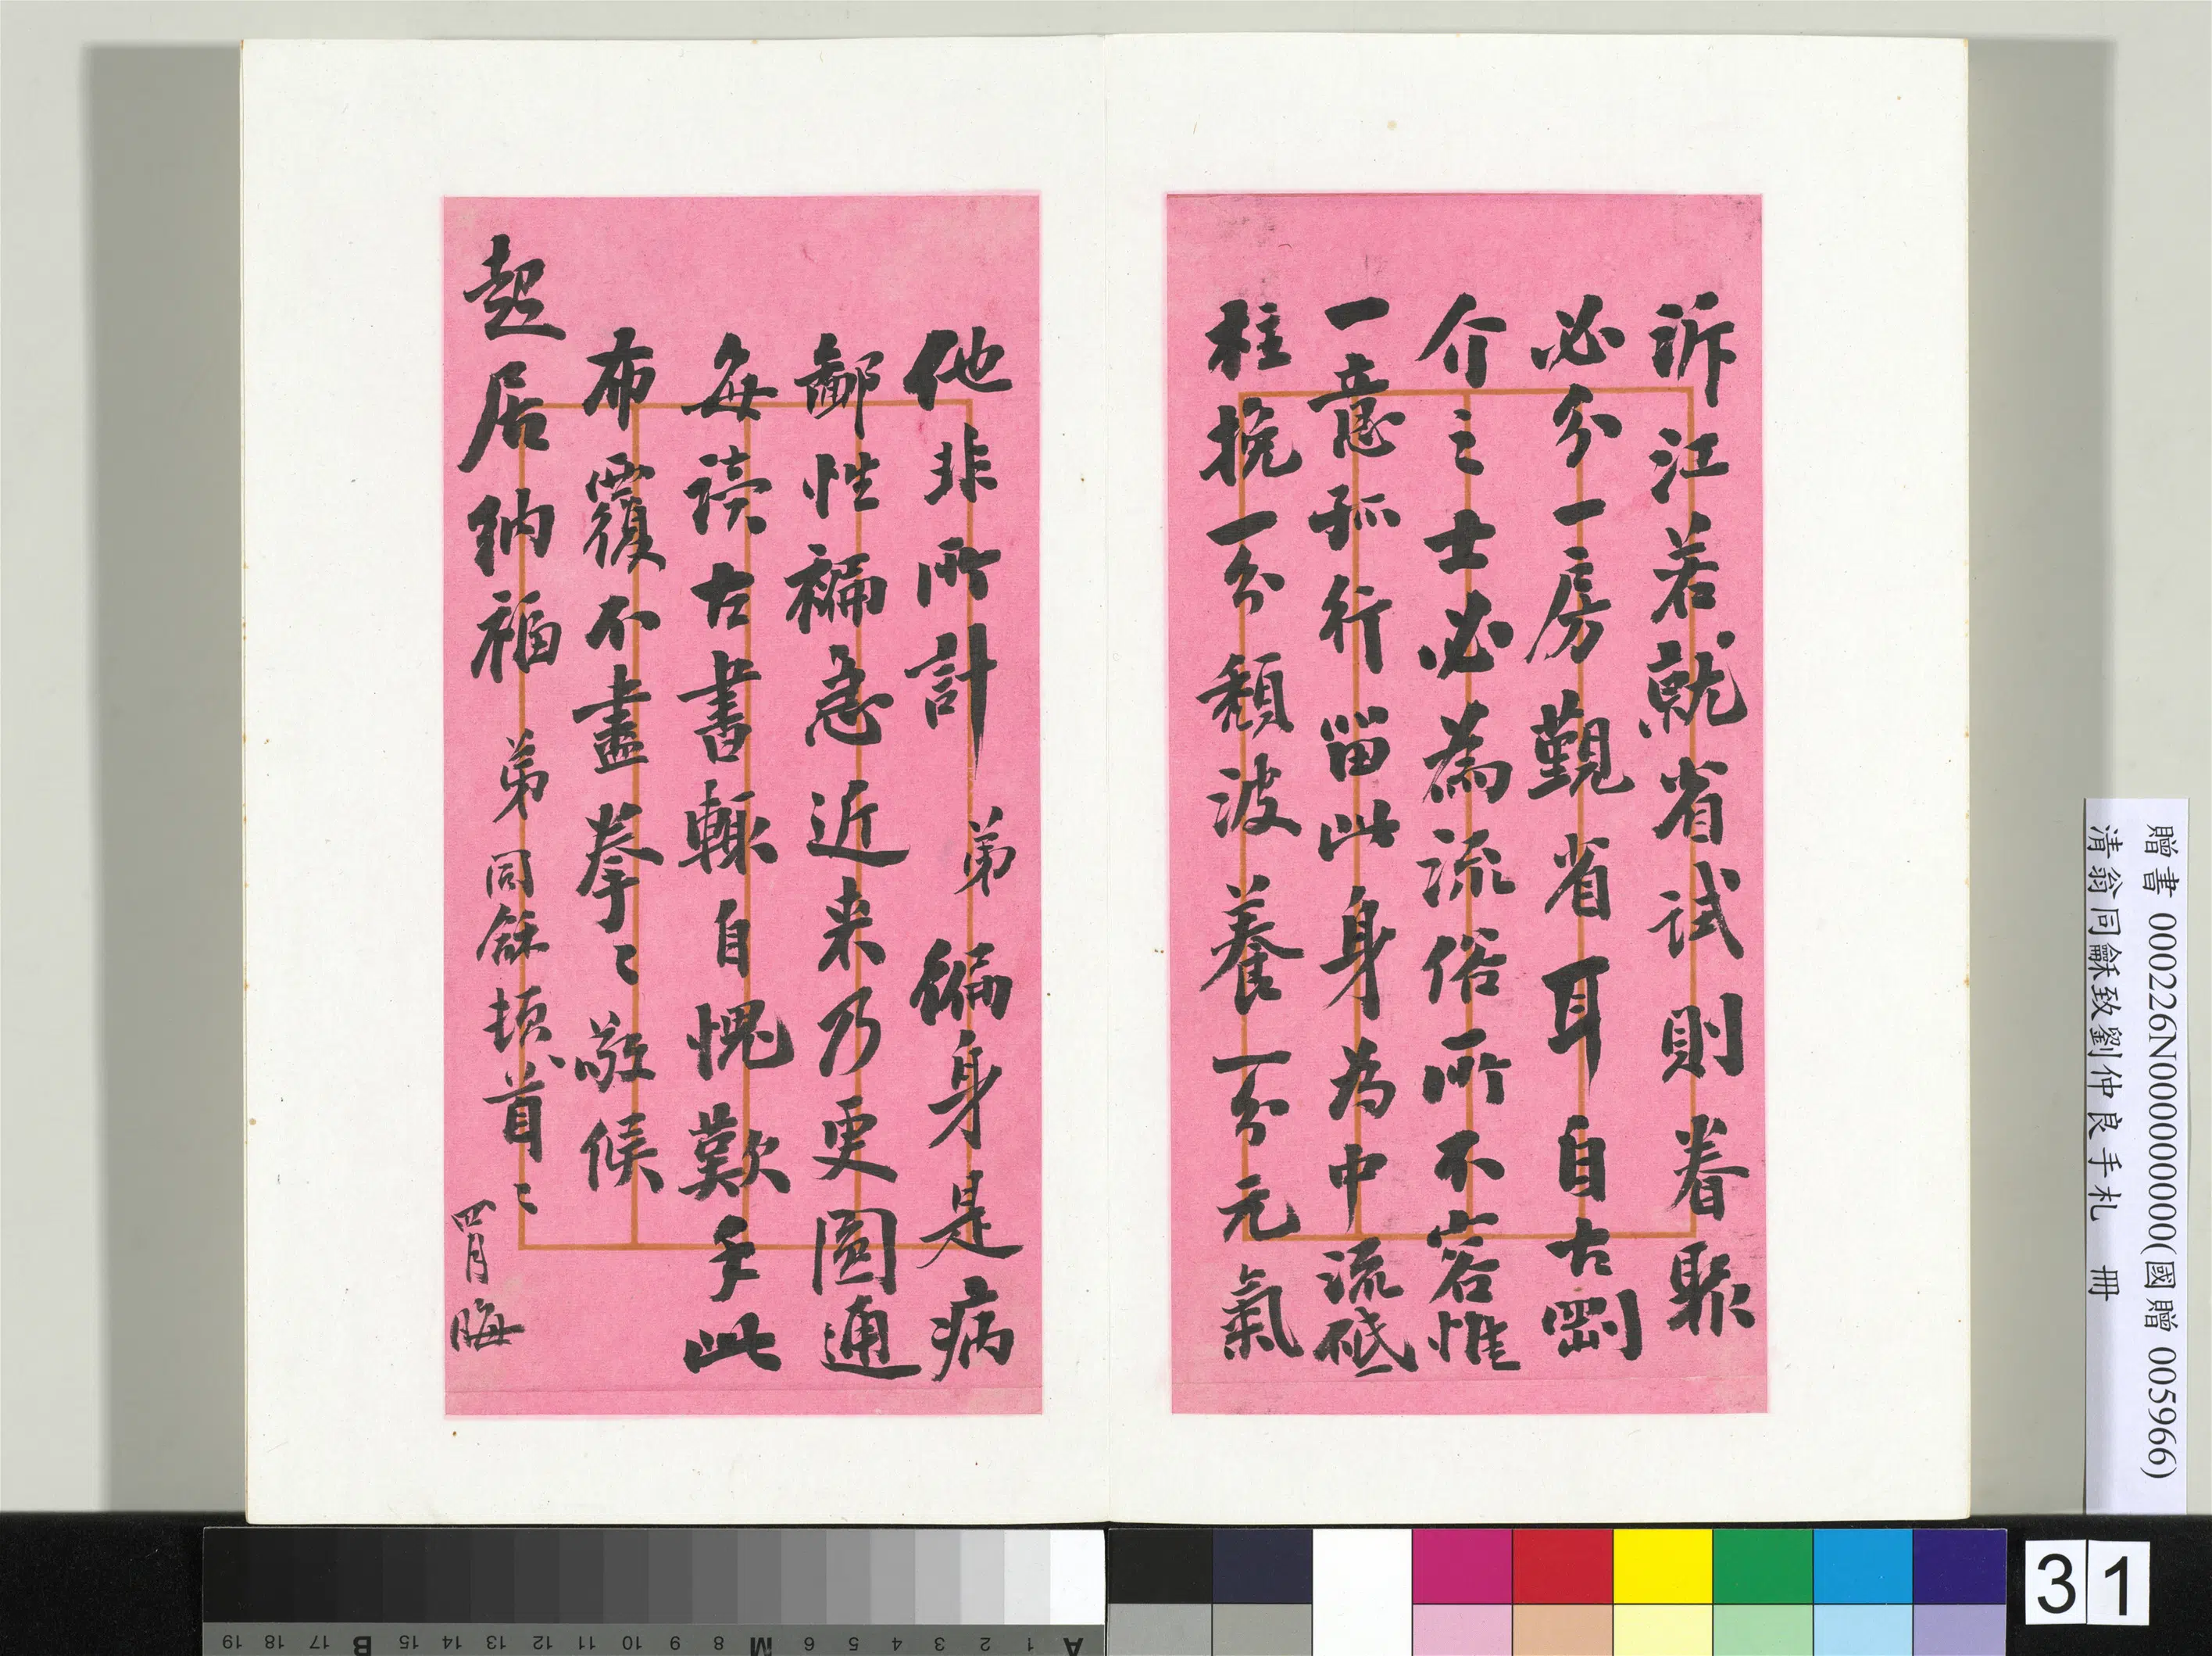 泝江若就省試則眷聚
必分一房覲省耳自古剛
介之士必為流俗所不容惟
一意孤行留此身為中流砥
柱挽一分頹波養一分元氣
他非所計 弟 徧身是病
鄙性褊急近来乃更圓通
每讀古書輒自愧歎手此
布覆不盡拳〻敬候
起居納福 弟同龢頓首〻
四月晦
贈書 000226N000000000(國贈 005966)
清翁同龢致劉仲良手札 冊
31
A 1 2 3 4 5 6 M 8 9 10 11 12 13 14 15 B 17 18 19